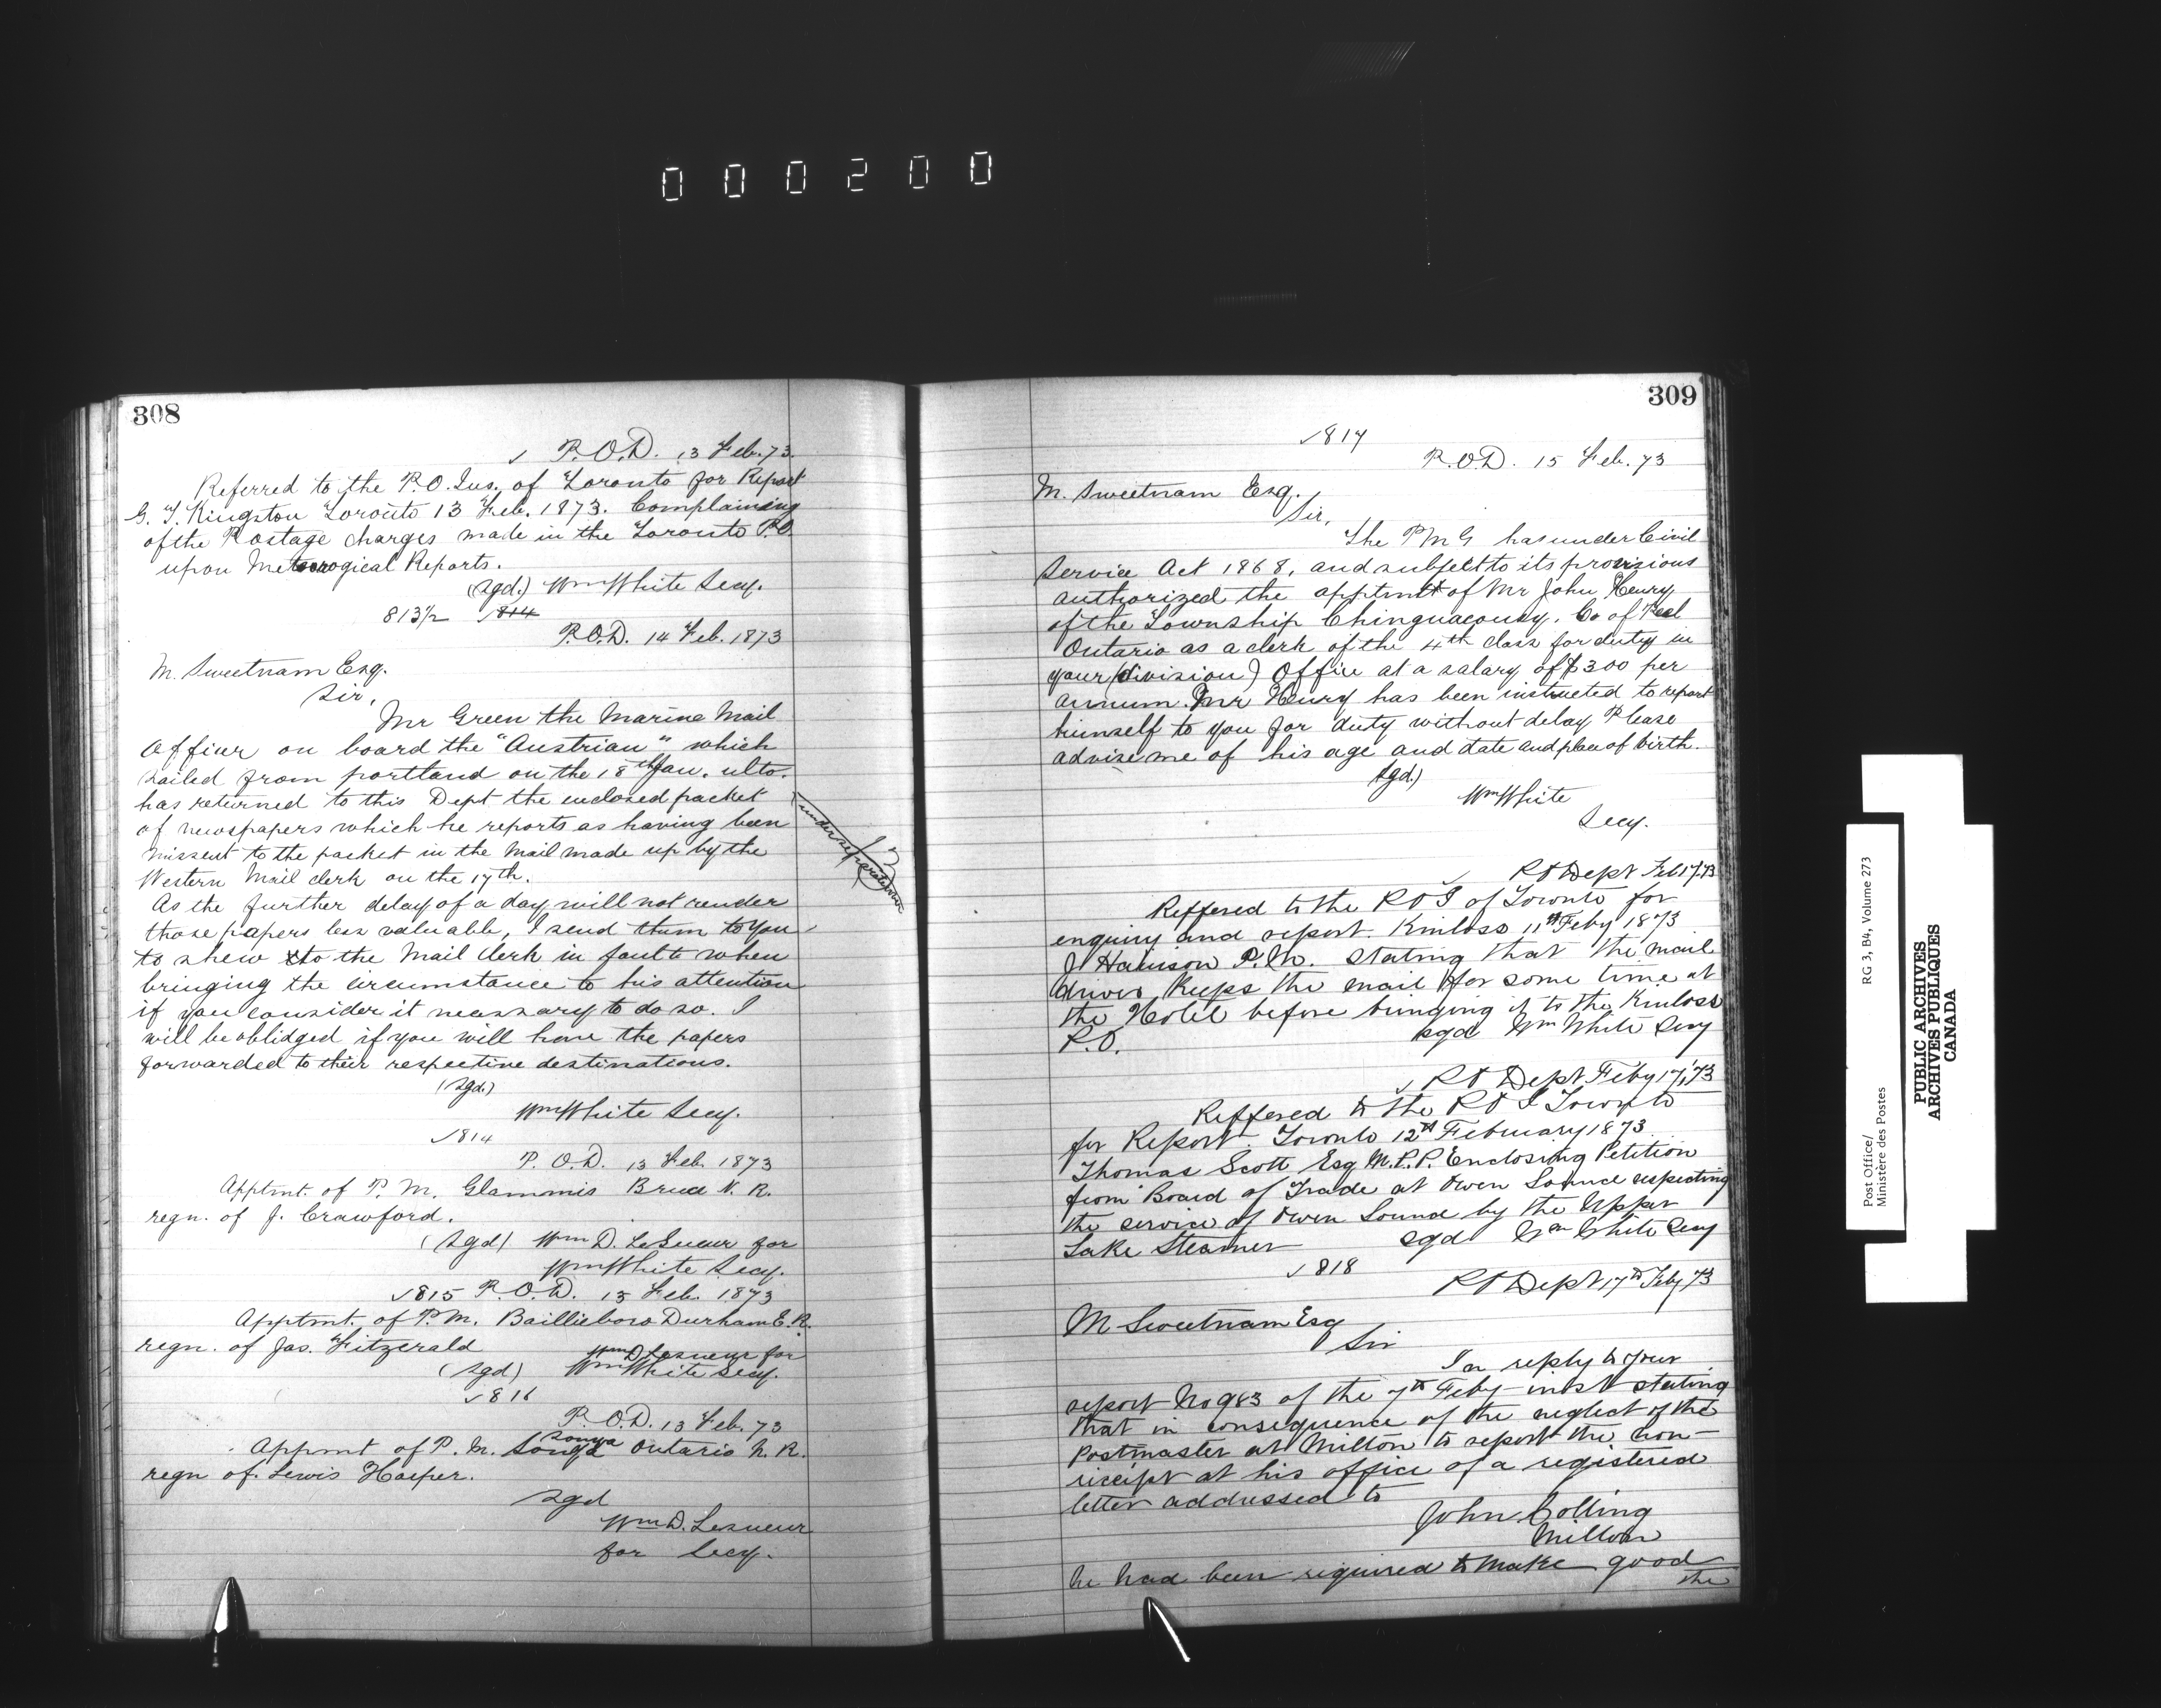 000200
308
✓ P.O.D. 13 Feb. 73.
Referred to the P.O. Ins. of Toronto for Report
G. T. Kingston Toronto 13 Feb. 1873. Complaining
of the Postage charges made in the Toronto P.O.
upon Meteorogical Reports.
(sgd.) Wm White Secy.
813½ ✓814
P.O.D. 14 Feb. 1873
M. Sweetnam Esq.
Sir,
Mr Green the Marine Mail
Officer on board the "Austrian" which
sailed from portland on the 18th Jan. ulto.
has returned to this Dept the enclosed packet
of newspapers which he reports as having been
missent to the packet in the Mail made up by the
Western Mail clerk on the 17th.
As the further delay of a day will not render
those papers less valuable, I send them to you
to shew to the Mail Clerk in fault when
bringing the circumstance to his attention
if you consider it necessary to do so. I
will be oblidged if you will have the papers
forwarded to their respective destinations.
(sgd.)
Wm White Secy.
under separate cover
✓814
P.O.D. 13 Feb. 1873
Apptmt. of P.M. Glammis Bruce N.R.
regn. of J. Crawford.
(sgd) Wm D. LeSueur for
Wm White Secy.
✓815 P.O.D. 13 Feb. 1873
Apptmt. of P.M. Baillieboro Durham E.R.
regn. of Jas. Fitzgerald
Wm D Lesueur for
(sgd) Wm White Secy.
✓816
P.O.D. 13 Feb. 73
Sonya
Appmt of P.M. Sonya Ontario N.R.
regn of Lewis Harper.
sgd
Wm D. Lesueur
for Secy.
309
✓817
P.O.D. 15 Feb. 73
M. Sweetnam Esq.
Sir,
The PMG has under Civil
Service Act 1868, and subject to its provisions
authorized the apptmt of Mr John Henry
of the Township Chinguacousy, Co of Peel
Ontario as a clerk of the 4th class for duty in
your (division) Office at a salary of $300 per
annum. Mr Henry has been instructed to report
himself to you for duty without delay Please
advise me of his age and date and place of birth.
sgd.)
Wm White
Secy.
✓ PO Dept Feb 17.73
Reffered to the POI of Toronto for
enquiry and report. Kinloss 11th Feby 1873
J Harrison P.M. stating that the mail
driver keeps the mail for some time at
the Hotel before bringing it to the Kinloss
P.O. sgd Wm White Secy
✓ PO Dept Feby 17, 73
Reffered to the POI Toronto
for Report. Toronto 12th February 1873
Thomas Scott Esq M.P.P. Enclosing Petition
from Board of Trade at Owen Sound respecting
the service of Owen Sound by the Upper
Lake Steamer sgd Wm White Secy
✓818
PO Dept 17th Feby 73
M Sweetnam Esq
Sir
In reply to your
report No 983 of the 7th Feby inst stating
that in consequence of the neglect of the
Postmaster at Milton to report the non-
receipt at his office of a registered
letter addressed to
John Colling
Milton
he had been required to make good
the
Post Office/
Ministère des Postes
RG 3, B4, Volume 273
PUBLIC ARCHIVES
ARCHIVES PUBLIQUES
CANADA